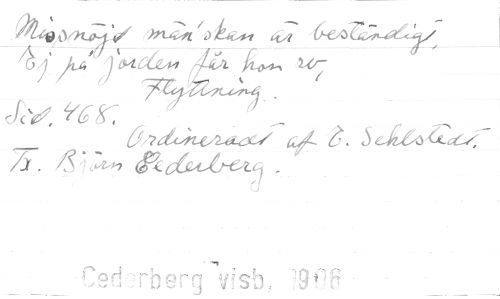 Missnöjd män'skan är beständigt,
Ej på jorden får hon ro,
Flyttning.
Sid. 468.
Ordineradt af E. Sehlstedt.
Tr. Björn Cederberg.
Cederberg visb, 1906